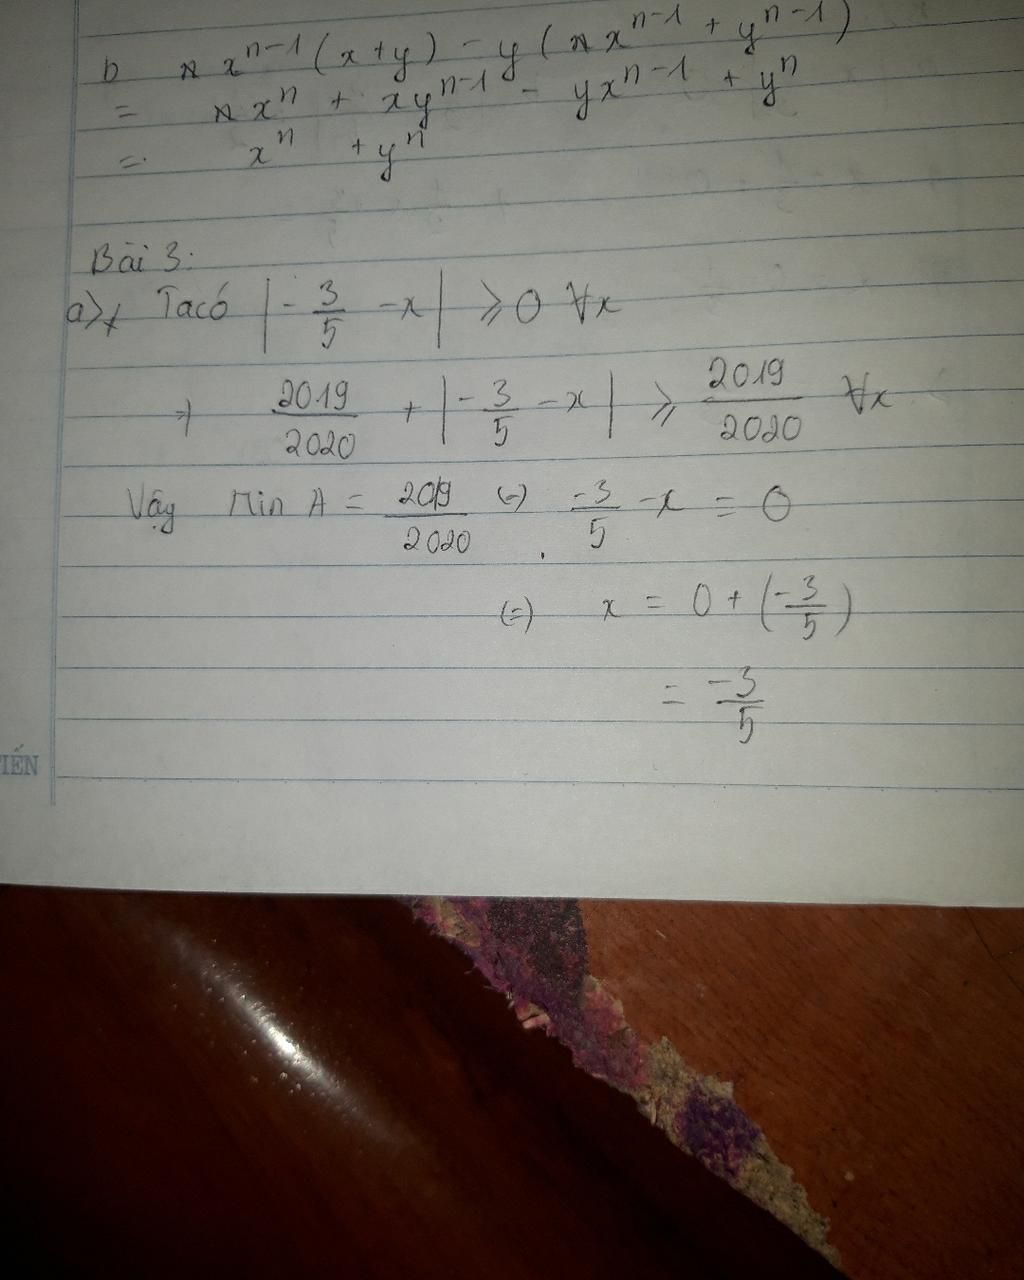 b x^{n-1}(x+y) - y(x^{n-1} + y^{n-1})
= x^n + xy^{n-1} - yx^{n-1} + y^n
= x^n + y^n
Bài 3:
a> Ta có |-3/5 - x| ⩾ 0 ∀x
=> 2019/2020 + |-3/5 - x| ⩾ 2019/2020 ∀x
Vậy Min A = 2019/2020 (=) -3/5 - x = 0
(=) x = 0 + (-3/5)
= -3/5
TIẾN